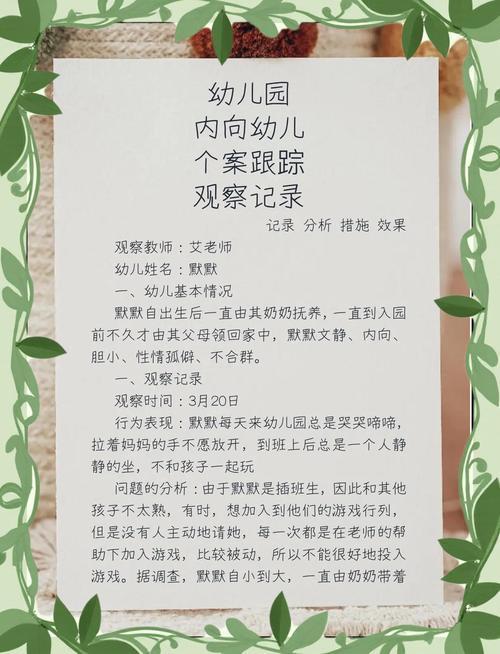 幼儿园
内向幼儿
个案跟踪
观察记录
记录 分析 措施 效果
观察教师：艾老师
幼儿姓名：默默
一、幼儿基本情况
默默自出生后一直由其奶奶抚养，一直到入园
前不久才由其父母领回家中，默默文静、内向、
胆小、性情孤僻、不合群。
一、观察记录
观察时间：3月20日
行为表现：默默每天来幼儿园总是哭哭啼啼，
拉着妈妈的手不愿放开，到班上后总是一个人静
静的坐，不和孩子一起玩
问题的分析：由于默默是插班生，因此和其他
孩子不太熟，有时，想加入到他们的游戏行列，
但是没有人主动地请她，每一次都是在老师的帮
助下加入游戏，比较被动，所以不能很好地投入
游戏。据调查，默默自小到大，一直由奶奶带着